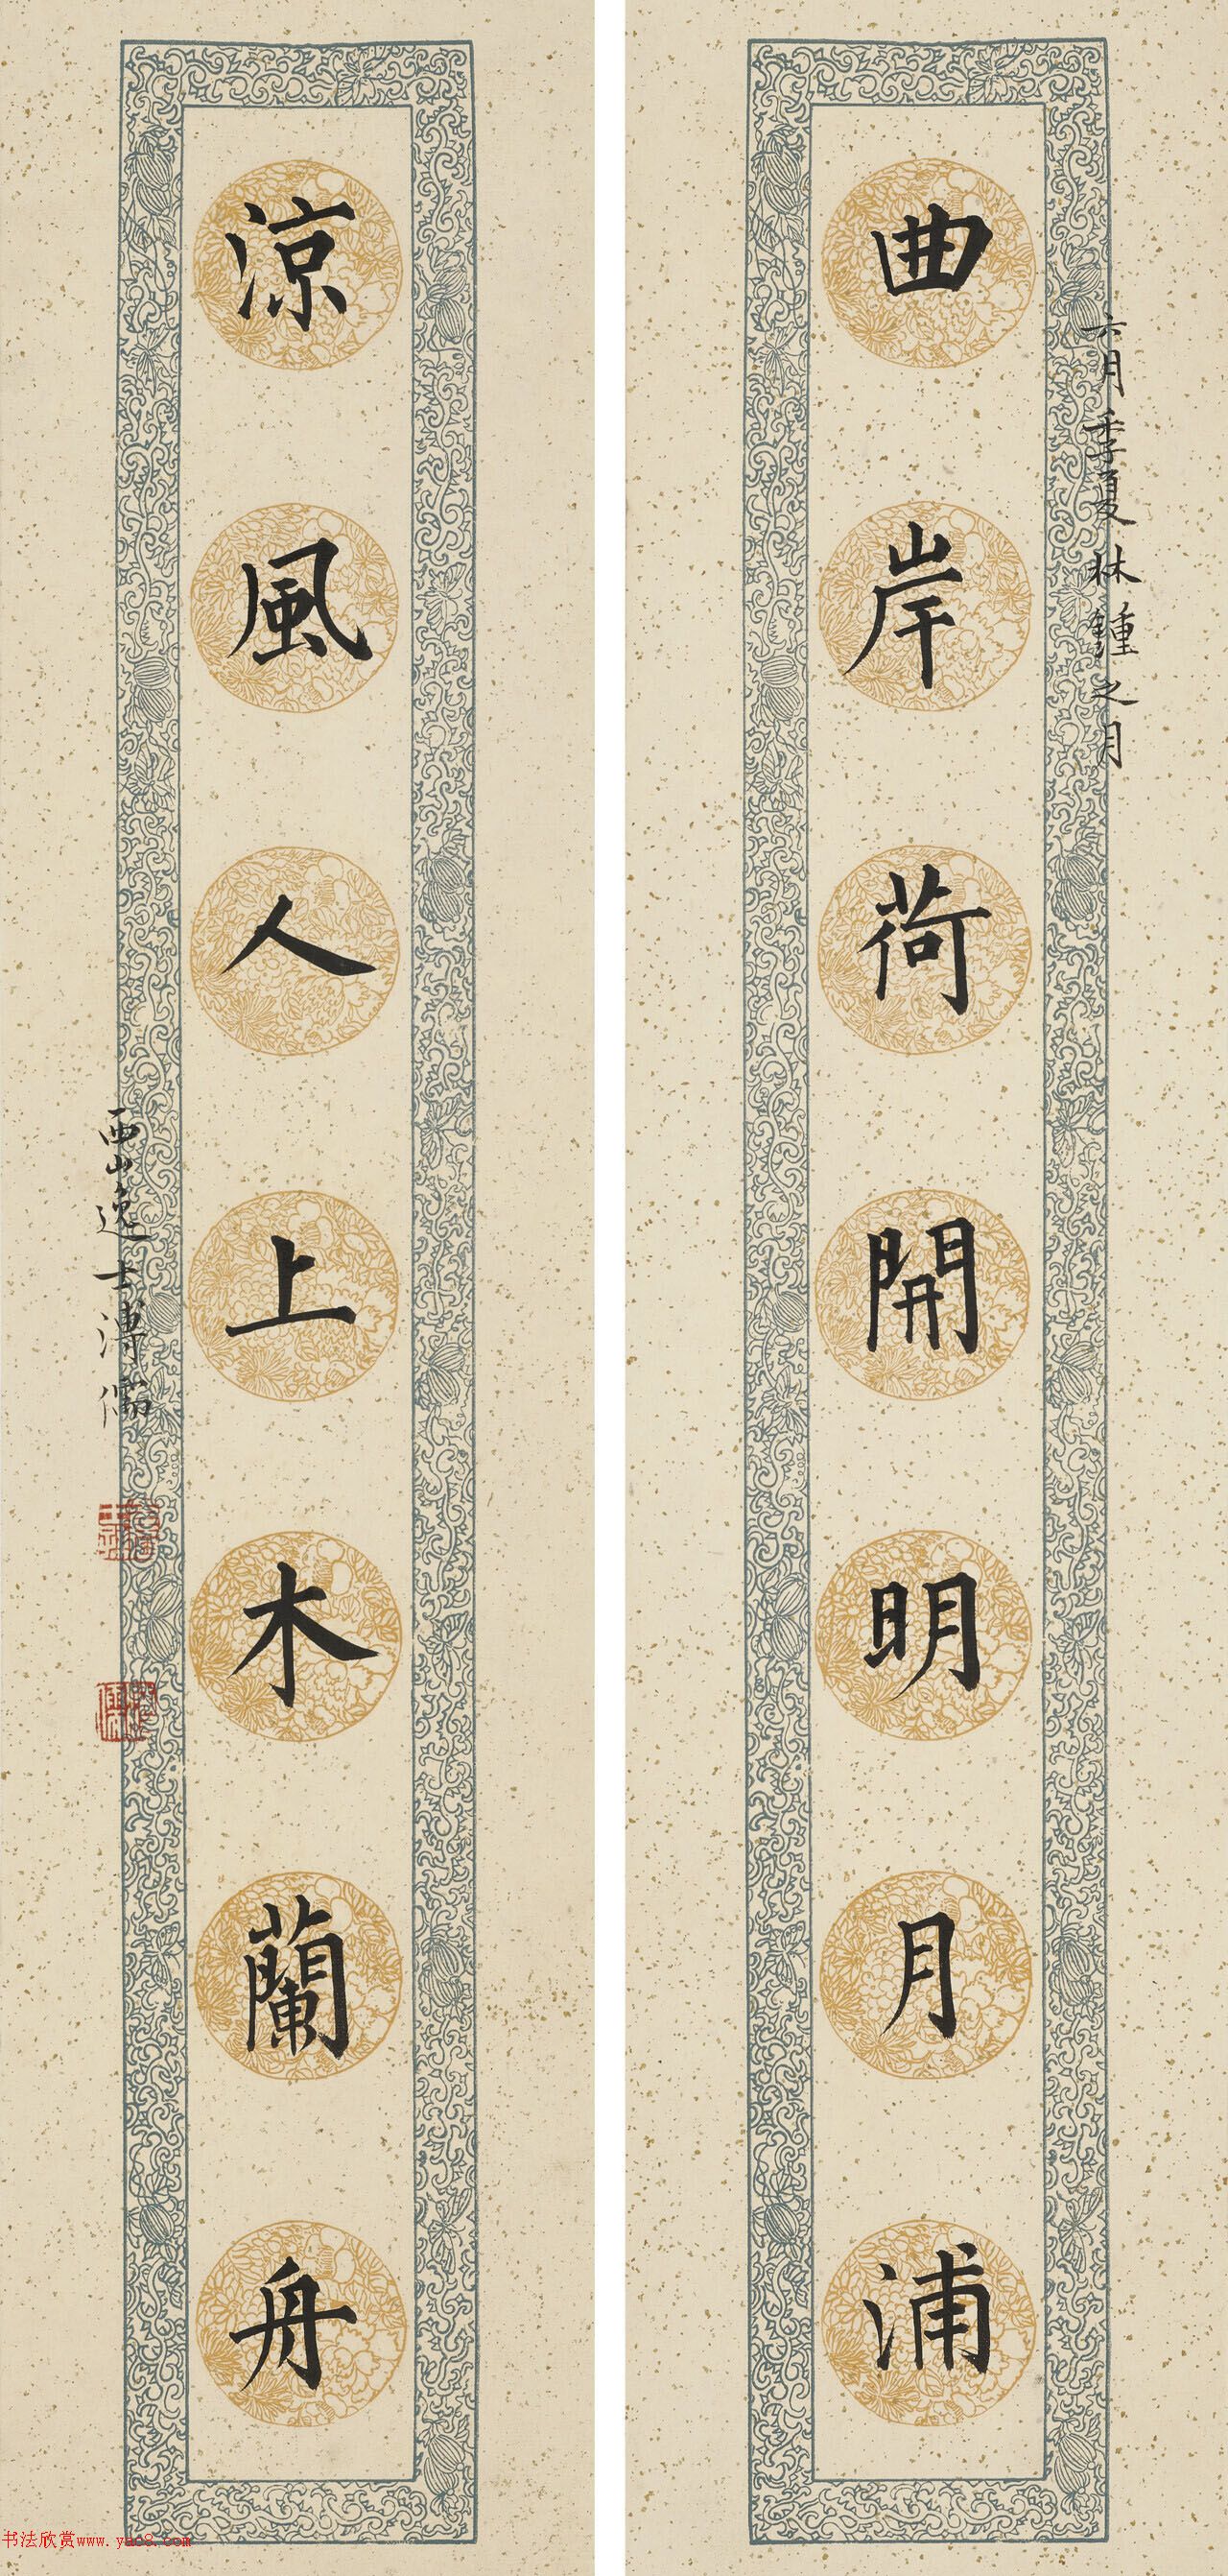 六月季夏林鍾之月
曲岸荷開明月浦
涼風人上木蘭舟
西山逸士溥儒
书法欣赏www.yac8.com